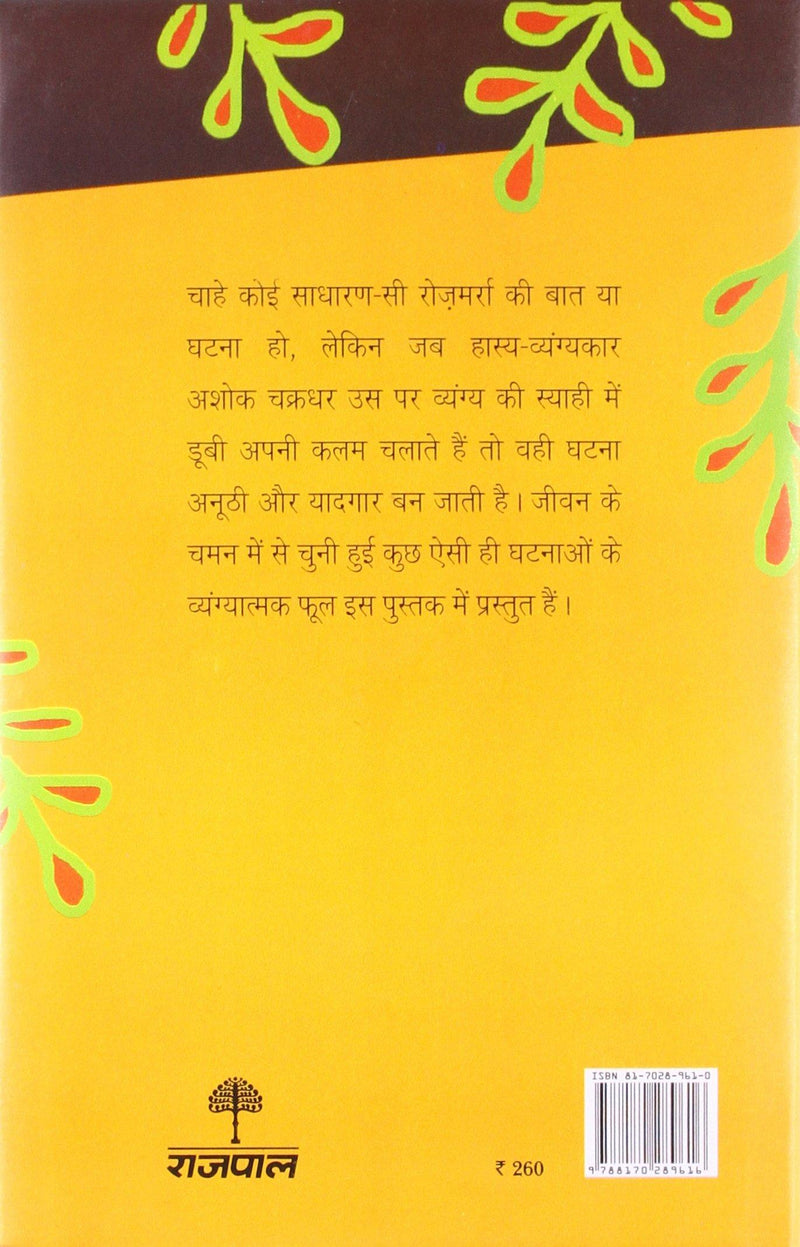 चाहे कोई साधारण-सी रोज़मर्रा की बात या
घटना हो, लेकिन जब हास्य-व्यंग्यकार
अशोक चक्रधर उस पर व्यंग्य की स्याही में
डूबी अपनी कलम चलाते हैं तो वही घटना
अनूठी और यादगार बन जाती है। जीवन के
चमन में से चुनी हुई कुछ ऐसी ही घटनाओं के
व्यंग्यात्मक फूल इस पुस्तक में प्रस्तुत हैं।
ISBN 81-7028-961-0
राजपाल
₹ 260
9788170289616